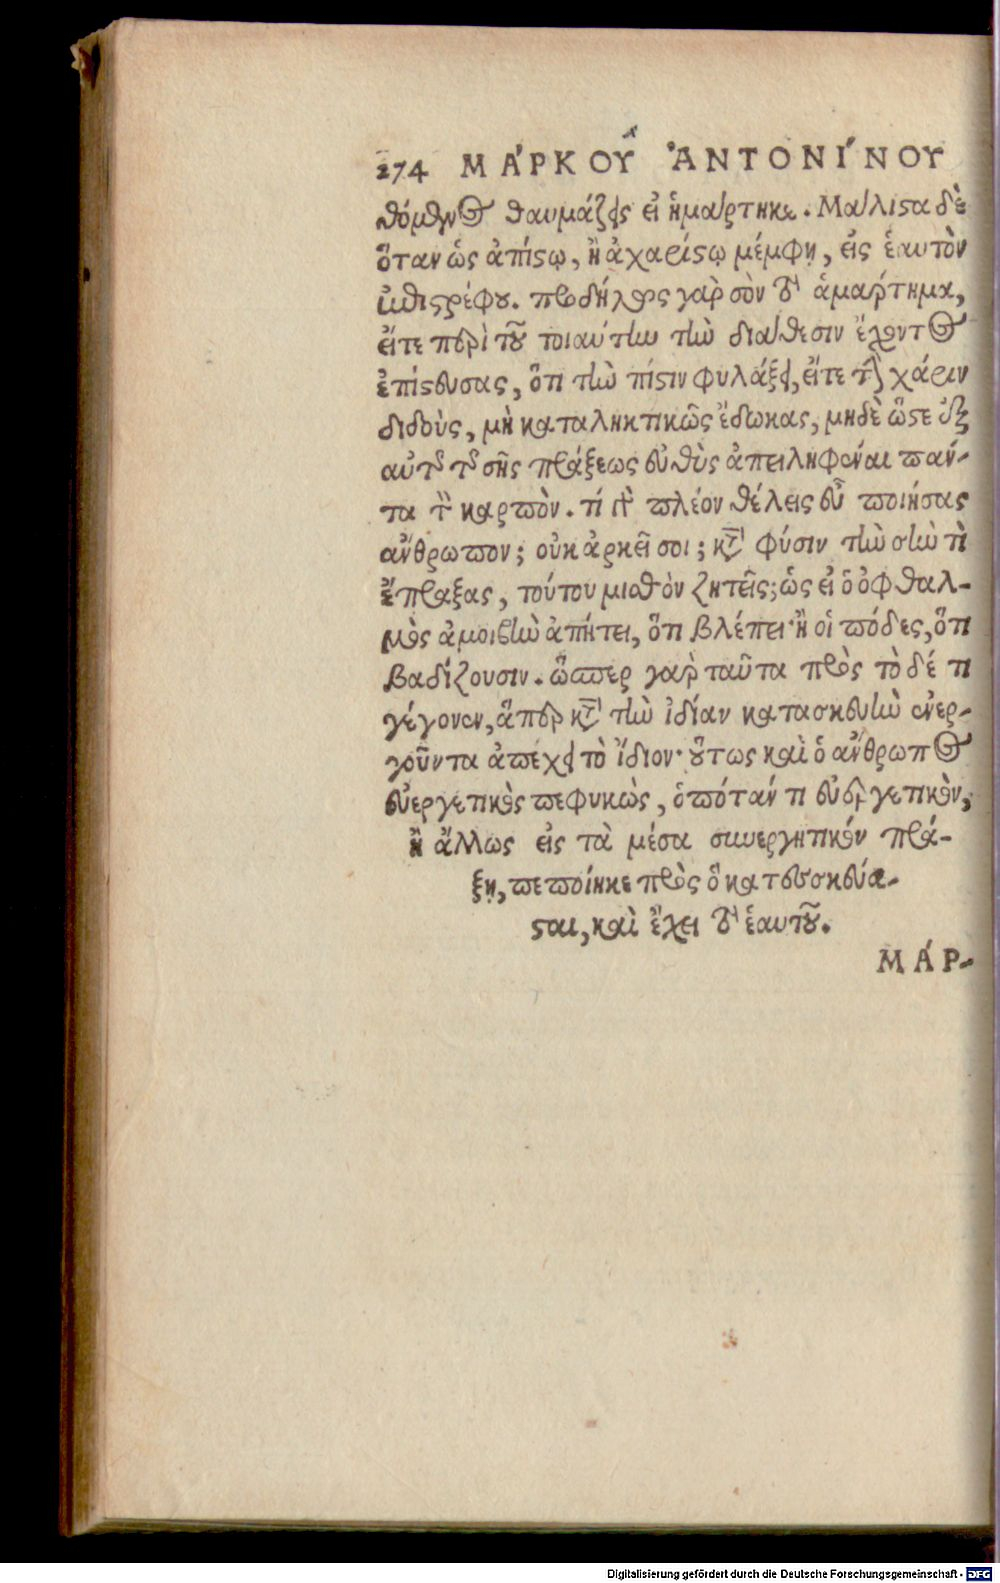 274 ΜΑ΄ΡΚΟΥ͂ ἈΝΤΟΝΙ΄ΝΟΥ
θόμενος θαυμάζεις εἰ ἡμάρτηκε. Μάλιστα δὲ
ὅταν ὡς ἀπίστῳ, ἢ ἀχαρίστῳ μέμφῃ, εἰς ἑαυτὸν
ἐπιστρέφου. πρόδηλος γὰρ σὸν τὸ ἁμάρτημα,
εἴτε περὶ τοῦ τοιαύτην τὴν διάθεσιν ἔχοντος
ἐπίστευσας, ὅτι τὴν πίστιν φυλάξει, εἴτε τὴν χάριν
διδοὺς, μὴ καταληκτικῶς ἔδωκας, μηδὲ ὥστε ἐξ
αὐτῆς τῆς σῆς πράξεως εὐθὺς ἀπειληφέναι πάν-
τα τὸν καρπὸν. τί γὰρ πλέον θέλεις εὖ ποιήσας
ἄνθρωπον; οὐκ ἀρκεῖ σοι; κατὰ φύσιν τὴν σὴν τὶ
ἔπραξας, τούτου μισθὸν ζητεῖς; ὡς εἰ ὁ ὀφθαλ-
μὸς ἀμοιβὴν ἀπῄτει, ὅτι βλέπει· ἢ οἱ πόδες, ὅτι
βαδίζουσιν. ὥσπερ γὰρ ταῦτα πρὸς τὸ δέ τι
γέγονεν, ἅπερ κατὰ τὴν ἰδίαν κατασκευὴν ἐνερ-
γοῦντα ἀπέχει τὸ ἴδιον· οὕτως καὶ ὁ ἄνθρωπος
εὐεργετικὸς πεφυκὼς, ὁπόταν τι εὐεργετικὸν,
ἢ ἄλλως εἰς τὰ μέσα συνεργητικόν πρά-
ξῃ, πεποίηκε πρὸς ὃ κατεσκεύα-
σται, καὶ ἔχει τὸ ἑαυτοῦ.
ΜΑ΄Ρ-
Digitalisierung gefördert durch die Deutsche Forschungsgemeinschaft - DFG